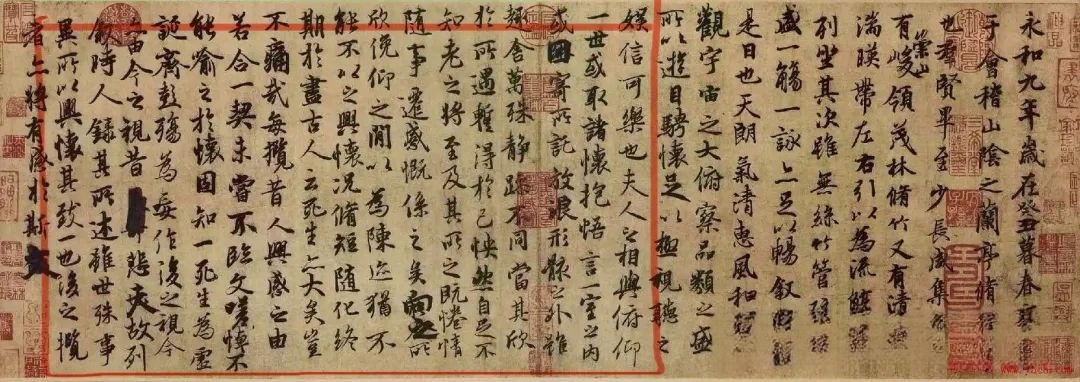 永和九年歲在癸丑暮春之初
于會稽山陰之蘭亭脩稧
也羣賢畢至少長咸集
有崇山峻領茂林脩竹又有清流
湍暎帶左右引以為流觴
列坐其次雖無絲竹管弦
盛一觴一詠亦足以暢敘幽情
是日也天朗氣清惠風和暢
觀宇宙之大俯察品類之盛
所以遊目騁懷足以極視聽之
娛信可樂也夫人之相與俯仰
一世或取諸懷抱悟言一室之內
或因寄所託放浪形骸之外雖
趣舍萬殊靜躁不同當其欣
於所遇暫得於己怏然自足不
知老之將至及其所之既惓情
隨事遷感慨係之矣向之所
欣俛仰之閒以為陳迹猶不
能不以之興懷況脩短隨化終
期於盡古人云死生亦大矣豈
不痛哉每攬昔人興感之由
若合一契未嘗不臨文嗟悼不
能喻之於懷固知一死生為虛
誕齊彭殤為妄作後之視今
亦由今之視昔悲夫故列
敘時人錄其所述雖世殊事
異所以興懷其致一也後之攬
者亦將有感於斯文